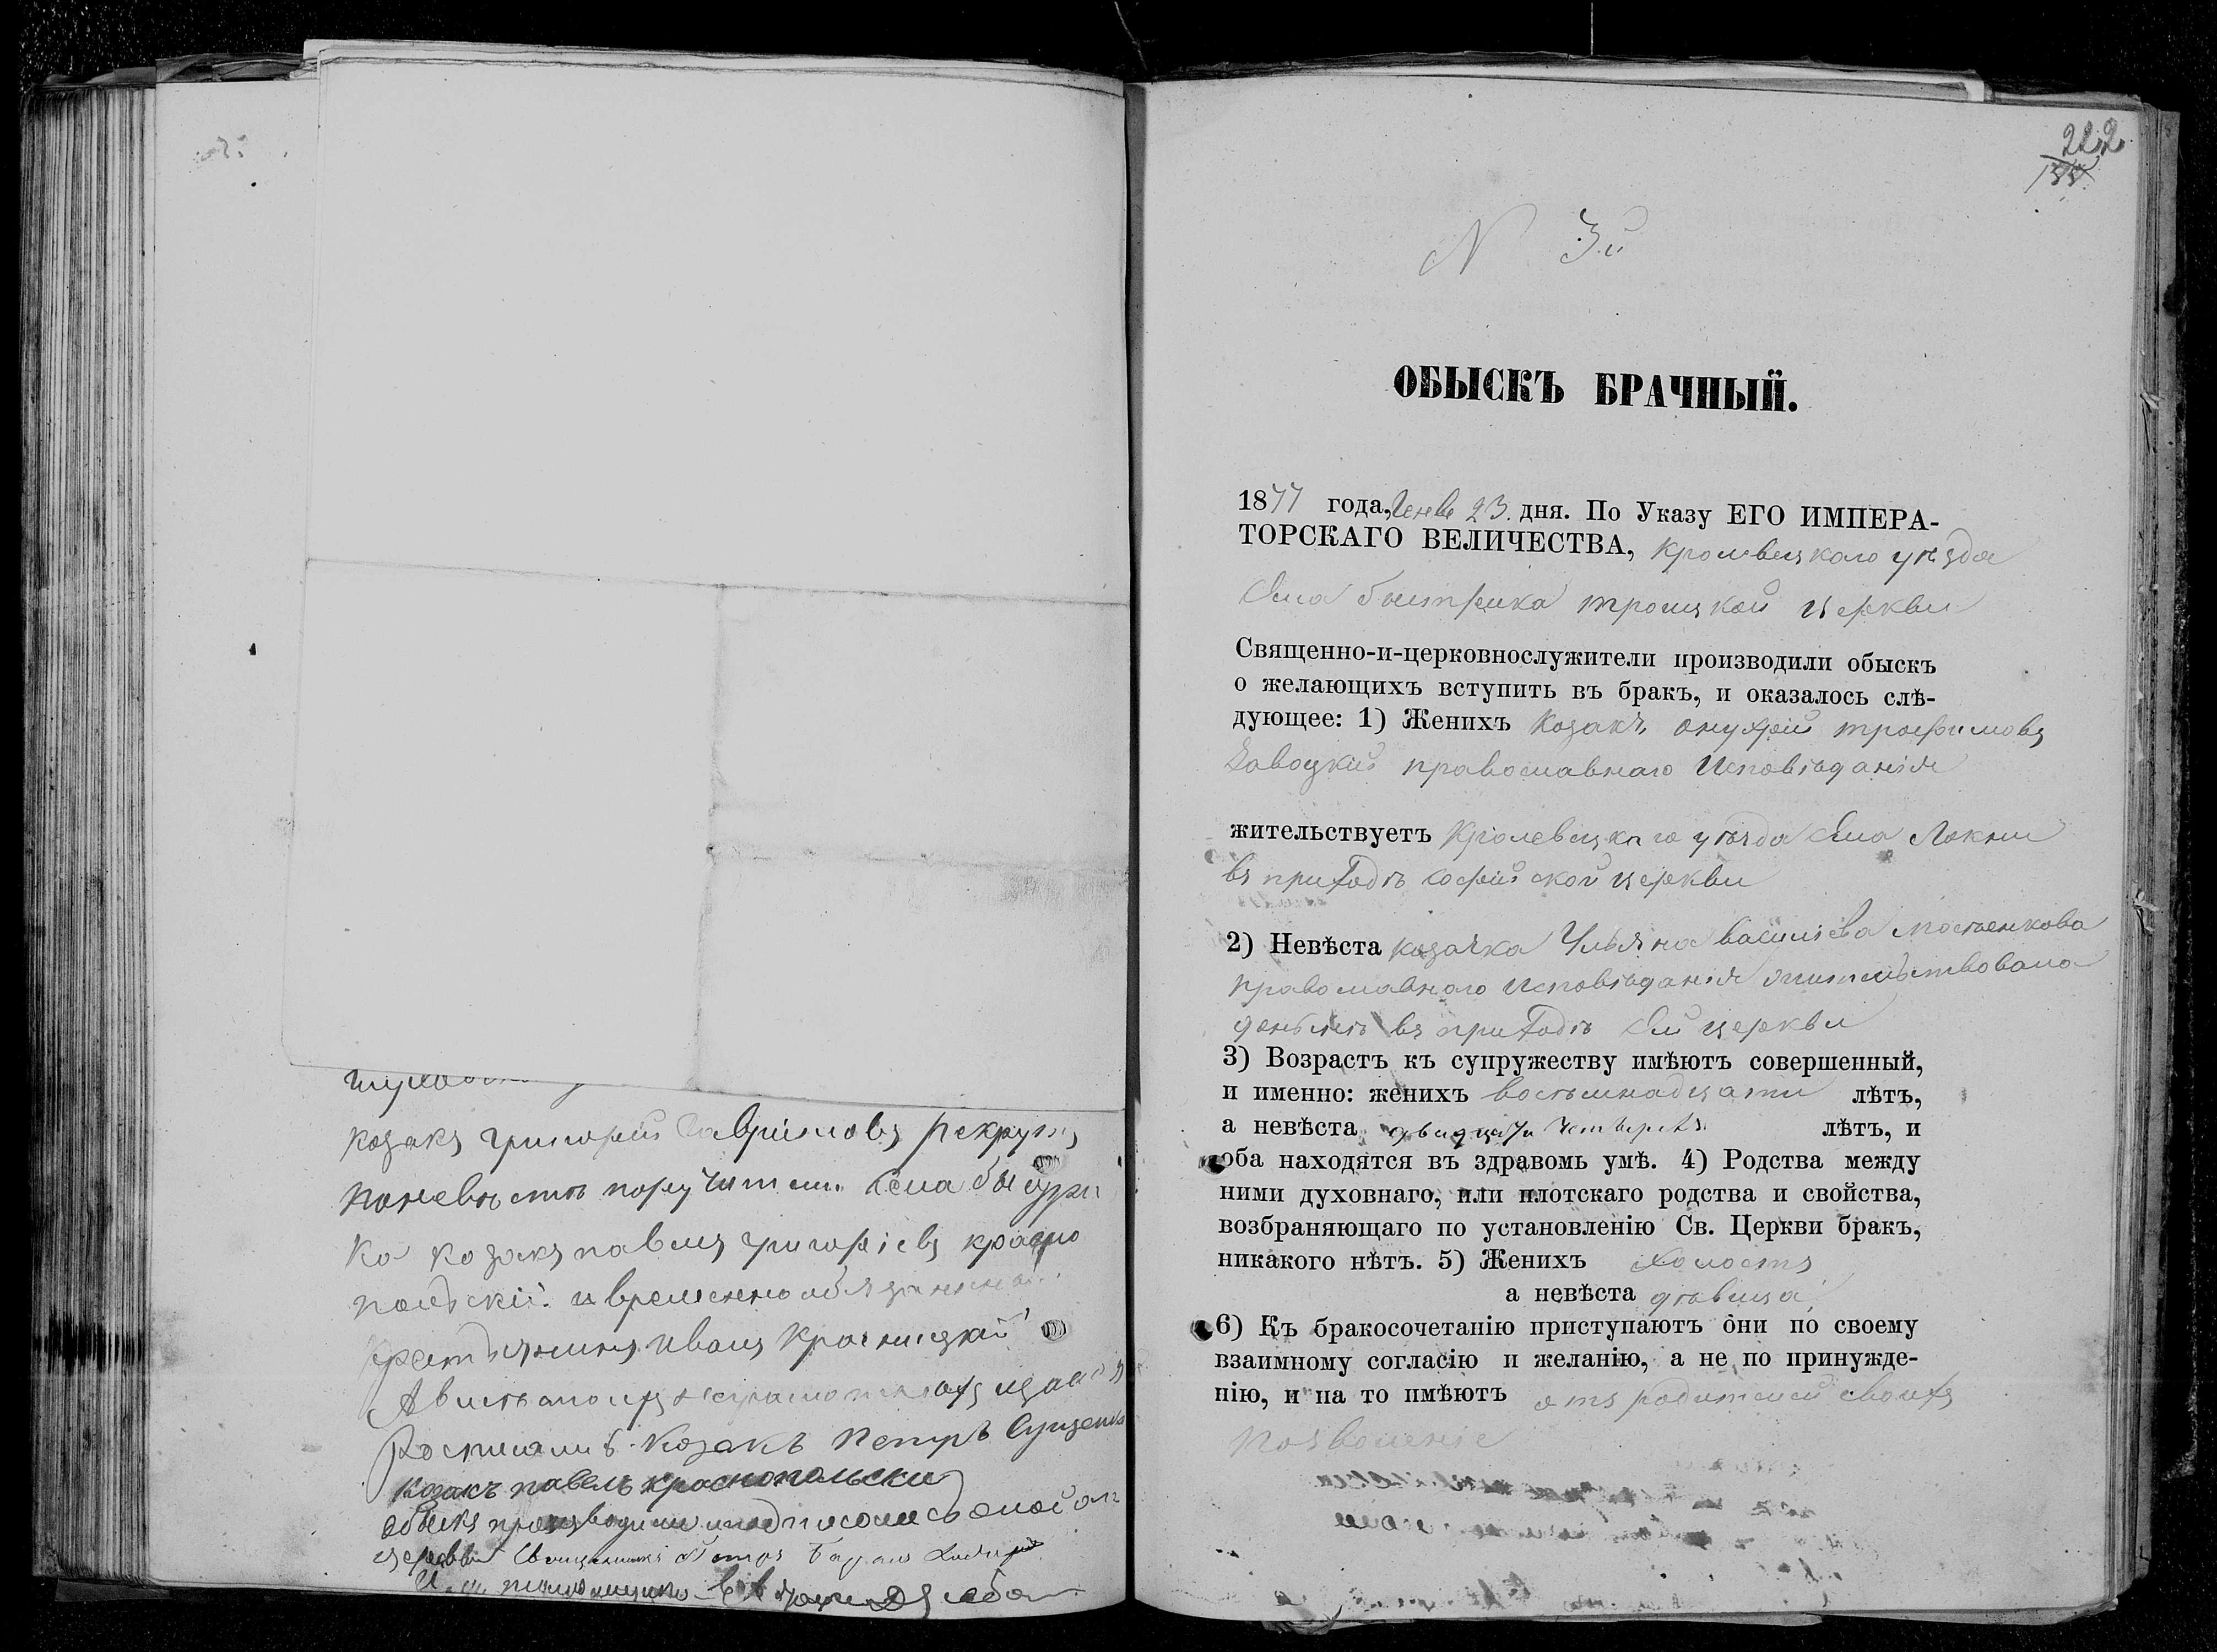 козакъ григорій Гаврiиловъ рекрутъ
поневѣстѣ поручители. Села быстри
ка козакъ павелъ григорiевъ красно
польскiй. и временнообязанный
крестьянинъ иванъ
Росписались козакъ Петръ
козакъ павелъ краснопольски
обыскъ производили
церкви Священникъ Петръ
222
N 3й
ОБЫСКЪ БРАЧНЫЙ.
1877 года, Генв 23. дня. По Указу ЕГО ИМПЕРА-
ТОРСКАГО ВЕЛИЧЕСТВА, кролвецкаго уѣзда
Села быстрика троицкой церкви
Священно-и-церковнослужители производили обыскъ
о желающихъ вступить въ бракъ, и оказалось слѣ-
дующее: 1) Женихъ козакъ онуфрій трофимовъ
Завоцкій православнаго Исповѣданія
жительствуетъ Кролевецкаго уѣзда Села Локни
въ приходѣ софійской церкви
2) Невѣста козачка Ульяна васильева
православнаго исповѣданія жительствовала
донынѣ въ приходѣ Сей церкви
3) Возрастъ къ супружеству имѣютъ совершенный,
и именно: женихъ восьмнадцати лѣтъ,
а невѣста двадцати четырехъ лѣтъ, и
оба находятся въ здравомъ умѣ. 4) Родства между
ними духовнаго, или плотскаго родства и свойства,
возбраняющаго по установленію Св. Церкви бракъ,
никакого нѣтъ. 5) Женихъ холостъ
а невѣста дѣвица
6) Къ бракосочетанію приступаютъ они по своему
взаимному согласію и желанію, а не по принужде-
нію, и на то имѣютъ отъ родителей своихъ
позволеніе